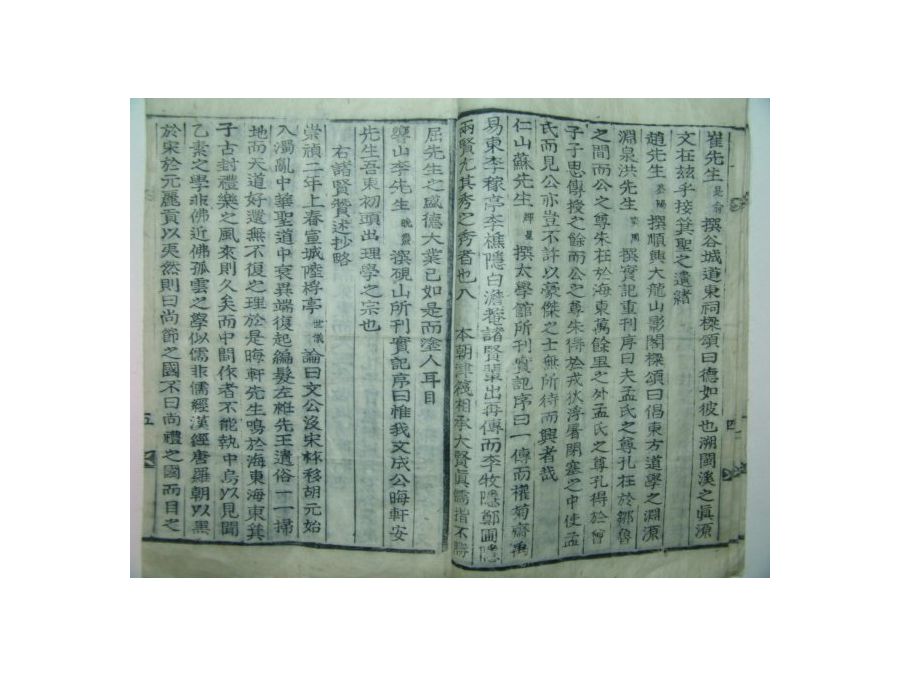 崔先生 是翁 撰谷城道東祠樑頌曰德如彼也溯閩溪之眞源
文在玆乎接箕聖之遺緖
趙先生 撰順興大龍山影閣樑頌曰倡東方道學之淵源
淵泉洪先生 撰實記重刊序曰夫孟氏之尊孔在於鄒魯
之間而公之尊朱在於海東萬餘里之外孟氏之尊孔得於曾
子子思傳授之餘而公之尊朱得於戎狄淨屠閉塞之中使孟
氏而見公亦豈不許以豪傑之士無所待而興者哉
仁山蘇先生 輝冕 撰太學館所刊實記序曰一傳而權菊齋禹
易東李稼亭李樵隱白澹菴諸賢輩出再傳而李牧隱鄭圃隱
兩賢尤其秀之秀者也入 本朝津筏相承大賢眞儒指不勝
屈先生之盛德大業已如是而塗人耳目
響山李先生 晩燾 撰硯山所刊實記序曰惟我文成公晦軒安
先生吾東初頭出理學之宗也
右諸賢贊述抄略
崇禎二年上春宣城陸桴亭 世儀 論曰文公沒宋祚移胡元始
入濁亂中華聖道中衰異端復起編髮左衽先王遺俗一一掃
地而天道好還無不復之理於是晦軒先生鳴於海東海東箕
子古封禮樂之風來則久矣而中間作者不能執中烏以見聞
乙素之學非佛近佛孤雲之學似儒非儒經漢經唐羅朝以黑
於宋於元麗貢以夷然則曰尚節之國不曰尚禮之國而目之
五
四